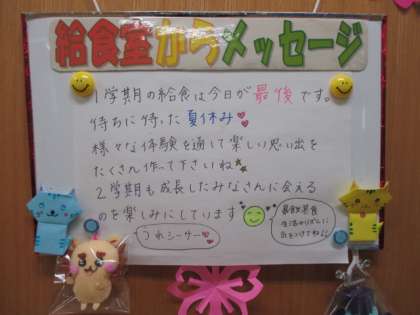 給食室からメッセージ
1学期の給食は今日が最後です。
待ちに待った夏休み
様々な体験を通して楽しい思い出を
たくさん作って下さいね
2学期も成長したみなさんに会える
のを楽しみにしています
暴飲暴食
生活のリズムに
気をつけてね!!
つれシーサー